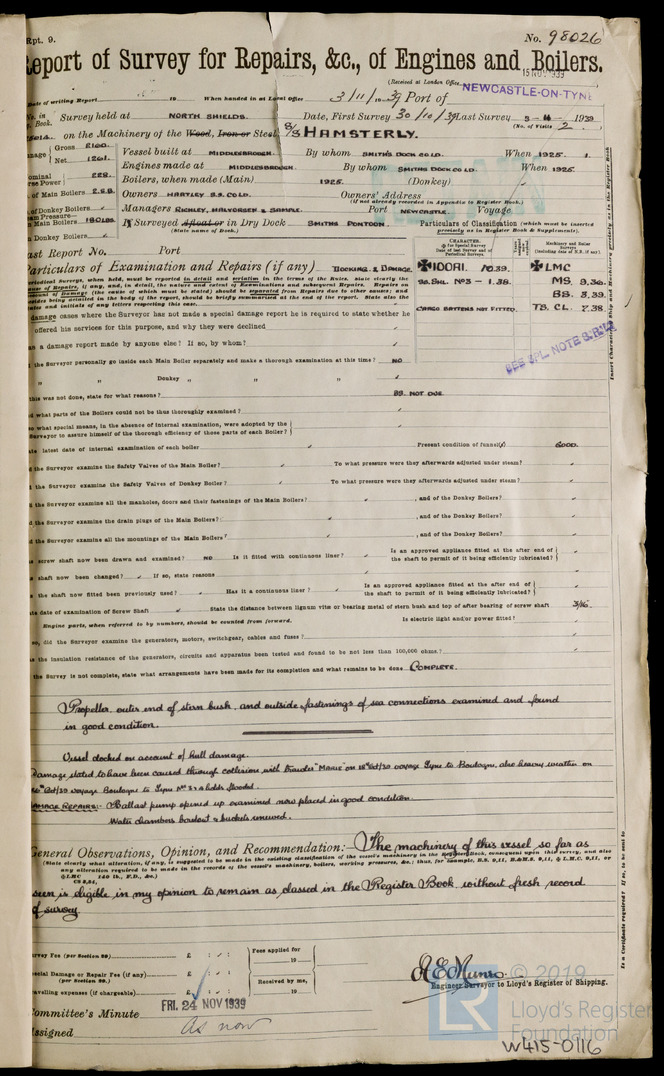 Rpt. 9.
No. 98026
Report of Survey for Repairs, &c., of Engines and Boilers.
(Received at London Office 15 NOV 1939
Date of writing Report 19 When handed in at Local Office 3/11/1939 Port of NEWCASTLE-ON-TYNE
No. in Survey held at NORTH SHIELDS Date, First Survey 30/10/39 Last Survey 3-11-1939
Book. (No. of Visits 2.)
on the Machinery of the Wood, Iron or Steel S/S HAMSTERLY.
Gross 2160. Vessel built at MIDDLESBROUGH By whom SMITH'S DOCK CO. LD. When 1925. 1.
Net 1201. Engines made at MIDDLESBROUGH. By whom SMITHS DOCK CO. LD. When 1925.
Nominal Horse Power 228. Boilers, when made (Main) 1925. (Donkey)
of Main Boilers 2.S.B. Owners HARTLEY S.S. CO. LD. Owners' Address
(if not already recorded in Appendix to Register Book.)
of Donkey Boilers Managers Port NEWCASTLE. Voyage
Main Boilers 180 LBS If Surveyed Afloat or in Dry Dock SMITHS PONTOON.
(State name of Dock.)
Donkey Boilers
Particulars of Classification (which must be inserted precisely as in Register Book & Supplements).
Last Report No. Port
CHARACTER.
✠100A1. 10.39. ✠LMC
SS.SHL. No3 - 1.38. MS. 9.36.
BS. 3.39.
CARGO BATTENS NOT FITTED. TS. CL. 7.38.
SEE SPL. NOTE S.R.L.
Particulars of Examination and Repairs (if any) DOCKING & DAMAGE.
damage cases where the Surveyor has not made a special damage report he is required to state whether he
offered his services for this purpose, and why they were declined
a damage report made by anyone else? If so, by whom?
the Surveyor personally go inside each Main Boiler separately and make a thorough examination at this time? NO
" " Donkey " " "
this was not done, state for what reasons? BS. NOT DUE.
what parts of the Boilers could not be thus thoroughly examined?
what special means, in the absence of internal examination, were adopted by the
Surveyor to assure himself of the thorough efficiency of those parts of each Boiler?
latest date of internal examination of each boiler Present condition of funnel(s) GOOD.
the Surveyor examine the Safety Valves of the Main Boiler? To what pressure were they afterwards adjusted under steam?
the Surveyor examine the Safety Valves of Donkey Boiler? To what pressure were they afterwards adjusted under steam?
the Surveyor examine all the manholes, doors and their fastenings of the Main Boilers? , and of the Donkey Boilers?
the Surveyor examine the drain plugs of the Main Boilers? , and of the Donkey Boilers?
the Surveyor examine all the mountings of the Main Boilers? , and of the Donkey Boilers?
screw shaft now been drawn and examined? NO Is it fitted with continuous liner? Is an approved appliance fitted at the after end of the shaft to permit of it being efficiently lubricated?
shaft now been changed? If so, state reasons
the shaft now fitted been previously used? Has it a continuous liner? Is an approved appliance fitted at the after end of the shaft to permit of it being efficiently lubricated?
date of examination of Screw Shaft State the distance between lignum vitæ or bearing metal of stern bush and top of after bearing of screw shaft 3/16.
Engine parts, when referred to by numbers, should be counted from forward. Is electric light and/or power fitted?
so, did the Surveyor examine the generators, motors, switchgear, cables and fuses?
the insulation resistance of the generators, circuits and apparatus been tested and found to be not less than 100,000 ohms?
the Survey is not complete, state what arrangements have been made for its completion and what remains to be done COMPLETE.
Propeller, outer end of stern bush, and outside fastenings of sea connections examined and found
in good condition.
Vessel docked on account of hull damage.
Damage stated to have been caused through collision with Trawler "MARIE" on 18th Oct/39 voyage Tyne to Boulogne, also heavy weather on
Oct/39 voyage Boulogne to Tyne holds flooded.
DAMAGE REPAIRS:- Ballast pump opened up examined now placed in good condition.
Water chambers boxed out & buckets renewed.
General Observations, Opinion, and Recommendation:- The machinery of this vessel so far as
(State clearly what alteration, if any, is suggested to be made in the existing classification of the vessel's machinery in the Register Book, consequent upon this survey, and also
any alteration required to be made in the records of the vessel's machinery, boilers, working pressures, &c.; thus, for example, B.S. 9,11, B&M.S. 9,11, & L.M.C. 9,11, or
seen is eligible in my opinion to remain as classed in the Register Book without fresh record
of survey.
Survey Fee (per Section 29) £ : : Fees applied for
19
Special Damage or Repair Fee (if any) £ : :
(per Section 29.) Received by me,
Travelling expenses (if chargeable) £ : : 19
A E Munro.
Engineer Surveyor to Lloyd's Register of Shipping.
Committee's Minute FRI. 24 NOV 1939
Assigned As now
© 2019
LR Lloyd's Register
Foundation
W415-0116